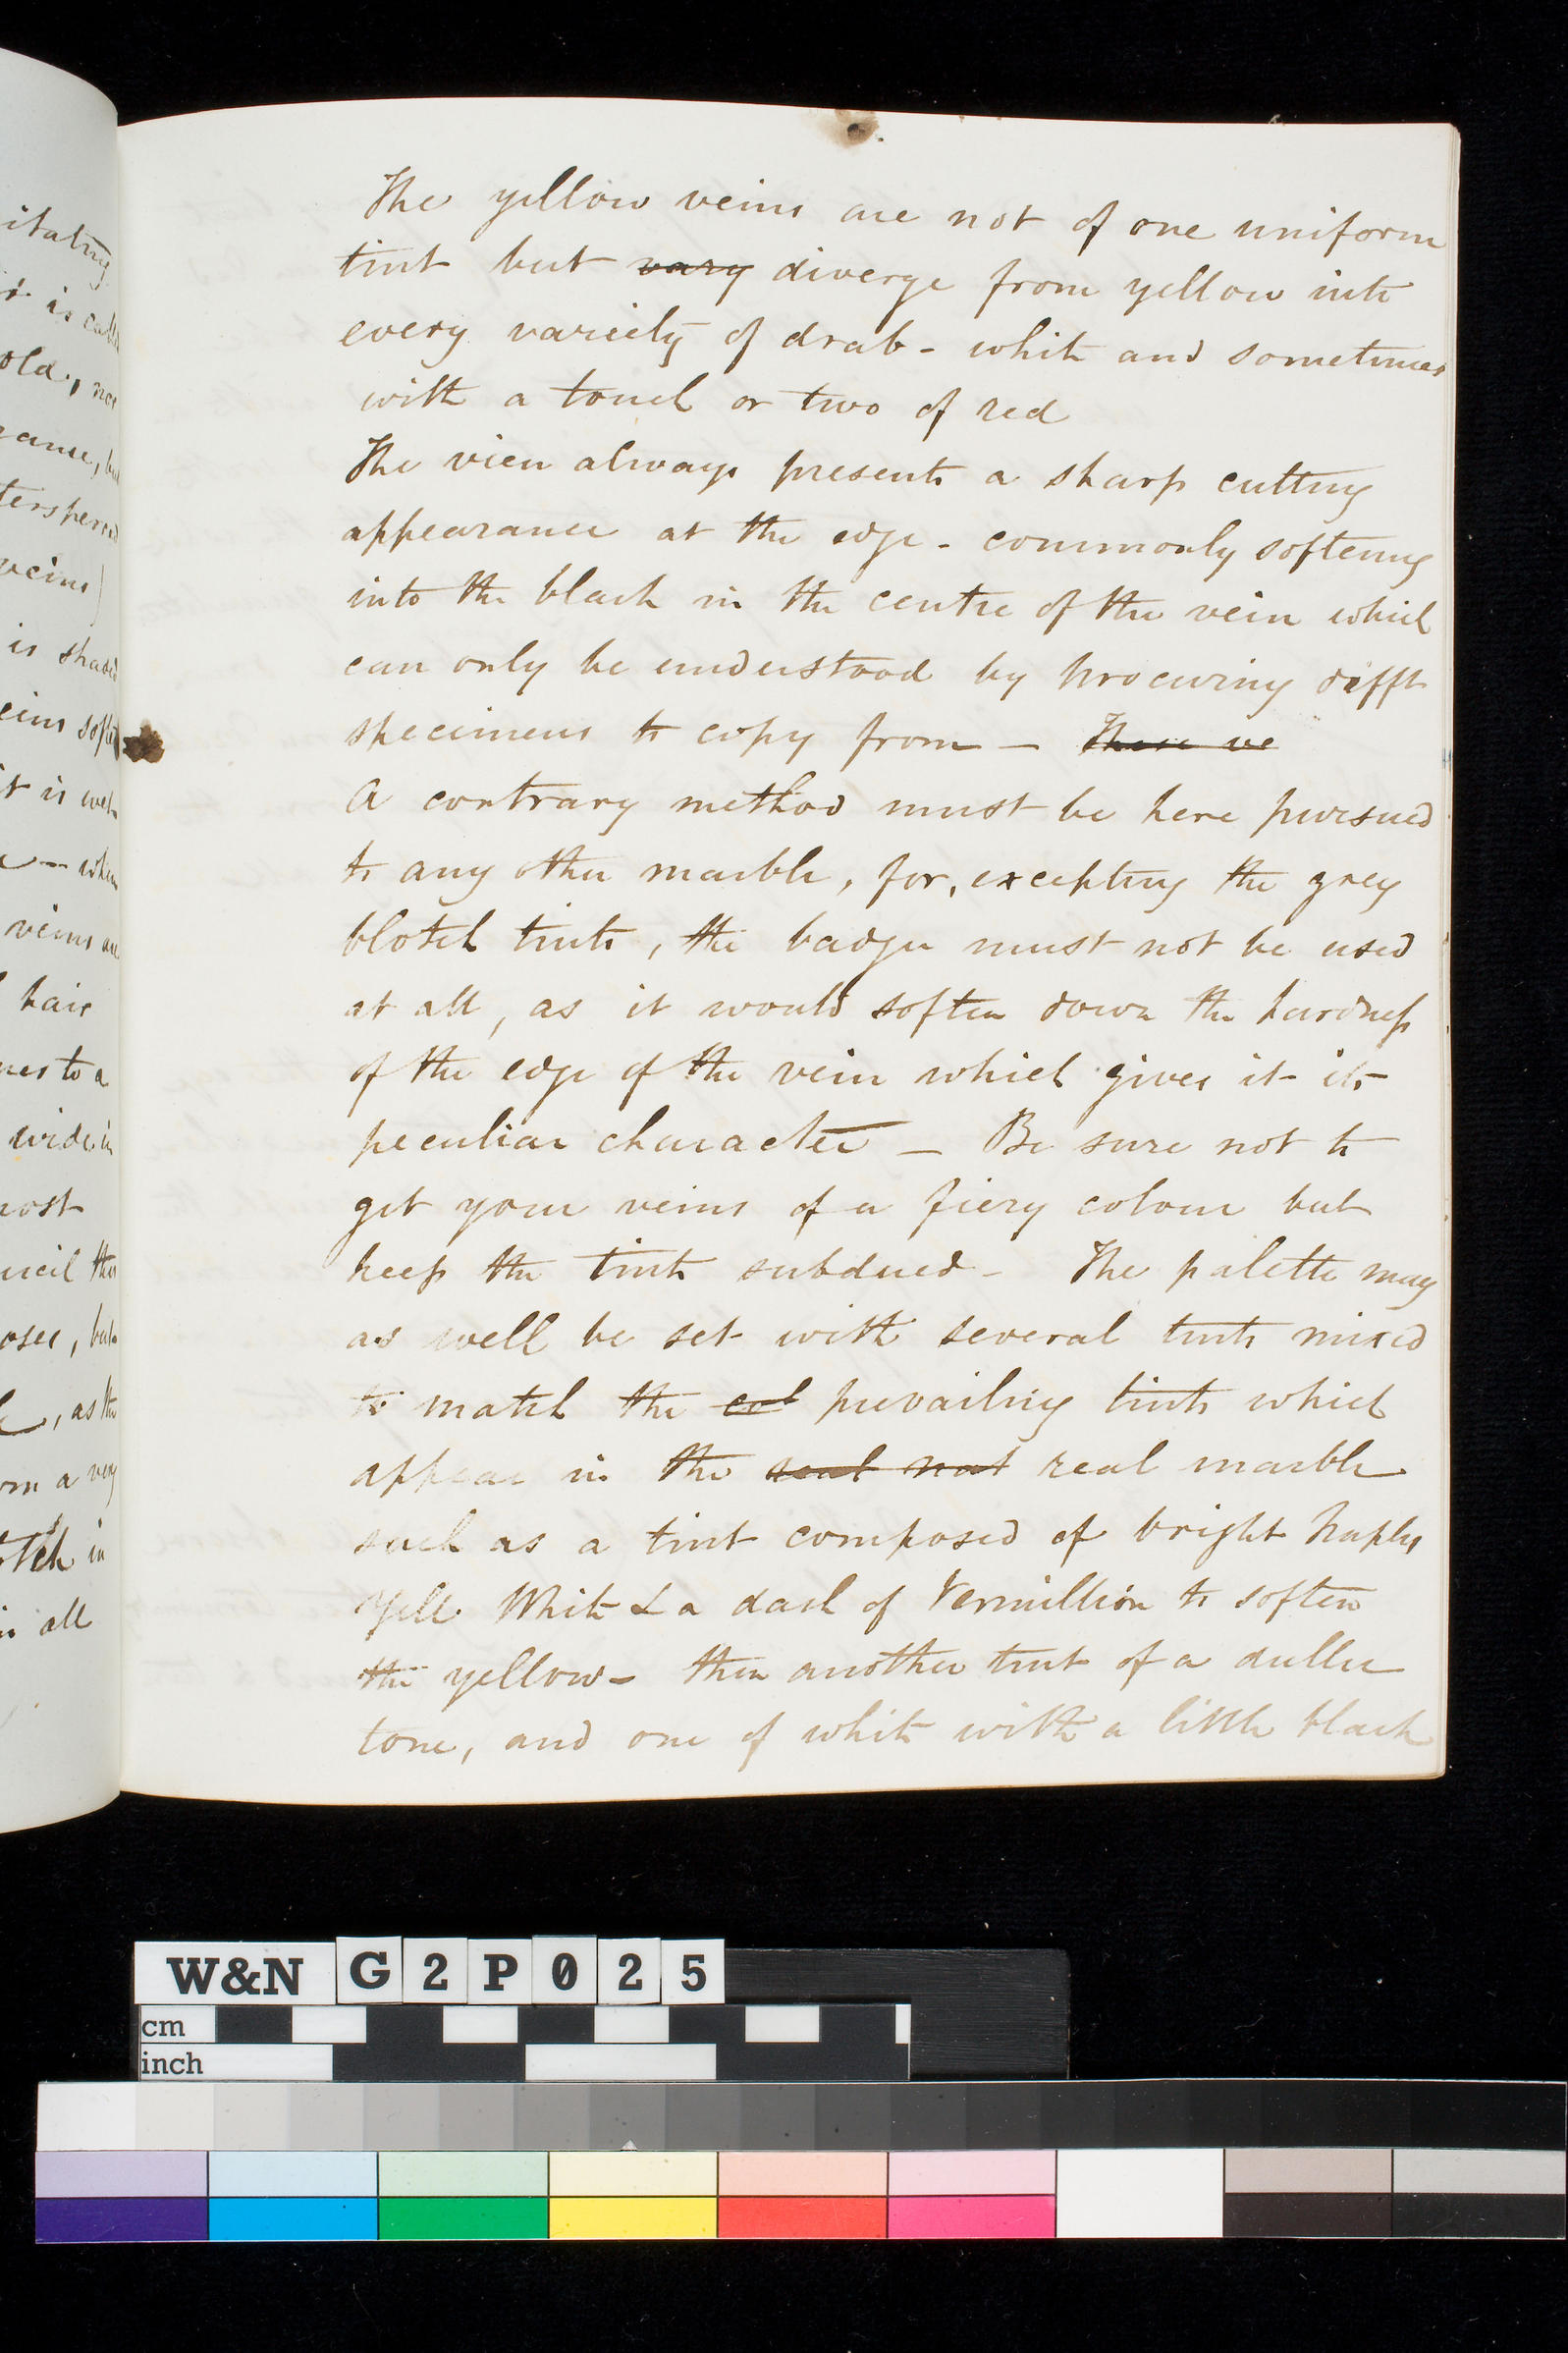 itating
is call
old, not
veins)
is shade
eins soft
it is wet
veins are
hair
to a
wide in
most
, but
, as the
a very
in
in all
The yellow veins are not of one uniform
tint but vary diverge from yellow into
every variety of drab - white and sometimes
with a touch or two of red
The vien always presents a sharp cutting
appearance at the edge - commonly softening
into the black in the centre of the vein which
can only be understood by procuring difft
specimens to copy from — These ve
A contrary method must be here pursued
to any other marble, for, excepting the grey
blotch tints, the badger must not be used
at all, as it would soften down the hardness
of the edge of the vein which gives it its
peculiar character — Be sure not to
get your veins of a fiery colour but
keep the tints subdued - The palette may
as well be set with several tints mixed
to match the col prevailing tints which
appear in the real mat real marble
such as a tint composed of bright Naples
Yell White & a dash of Vermillion to soften
the yellow - then another tint of a duller
tone, and one of white with a little black
W&N G2P025
cm
inch